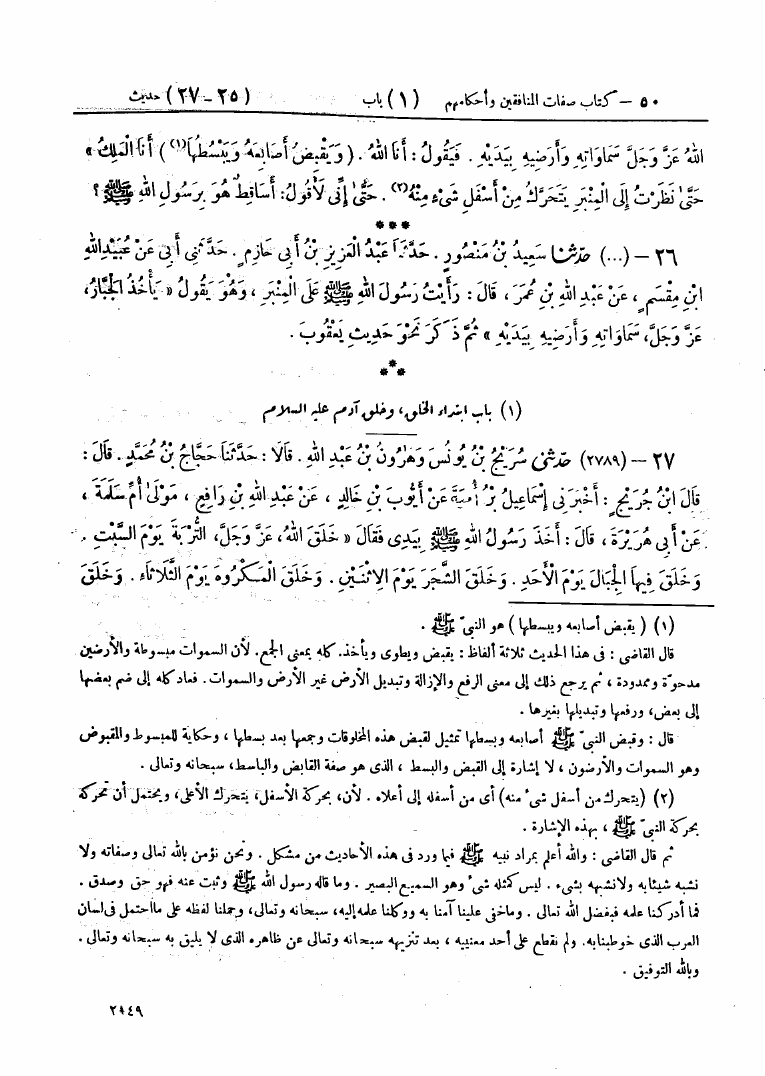 ٥٠ – كتاب صفات المنافقين وأحكامهم (١) باب (٢٥ – ٢٧) حديث
اللهُ عَزَّ وَجَلَّ سَمَاوَاتِهِ وَأَرَضِيهِ بِيَدَيْهِ . فَيَقُولُ : أَنَا اللهُ . (وَيَقْبِضُ أَصَابِعَهُ وَيَبْسُطُهَا(١)) أَنَا الْمَلِكُ »
حَتَّىٰ نَظَرْتُ إِلَى الْمِنْبَرِ يَتَحَرَّكُ مِنْ أَسْفَلِ شَيْءٍ مِنْهُ(٢) . حَتَّىٰ إِنِّي لَأَقُولُ : أَسَاقِطٌ هُوَ بِرَسُولِ اللهِ ﷺ ؟
***
٢٦ – (...) حَدَّثَنَا سَعِيدُ بْنُ مَنْصُورٍ . حَدَّثَنَا عَبْدُ الْعَزِيزِ بْنُ أَبِي حَازِمٍ . حَدَّثَنِي أَبِي عَنْ عُبَيْدِ اللهِ
ابْنِ مِقْسَمٍ ، عَنْ عَبْدِ اللهِ بْنِ عُمَرَ ، قَالَ : رَأَيْتُ رَسُولَ اللهِ ﷺ عَلَى الْمِنْبَرِ ، وَهُوَ يَقُولُ « يَأْخُذُ الْجَبَّارُ ،
عَزَّ وَجَلَّ، سَمَاوَاتِهِ وَأَرَضِيهِ بِيَدَيْهِ » ثُمَّ ذَكَرَ نَحْوَ حَدِيثِ يَعْقُوبَ .
***
(١) باب ابتداء الخلق ، وخلق آدم عليه السلام
٢٧ – (٢٧٨٩) حَدَّثَنِي سُرَيْجُ بْنُ يُونُسَ وَهَرُونُ بْنُ عَبْدِ اللهِ . قَالَا : حَدَّثَنَا حَجَّاجُ بْنُ مُحَمَّدٍ . قَالَ :
قَالَ ابْنُ جُرَيْجٍ : أَخْبَرَنِي إِسْمَاعِيلُ بْنُ أُمَيَّةَ عَنْ أَيُّوبَ بْنِ خَالِدٍ ، عَنْ عَبْدِ اللهِ بْنِ رَافِعٍ ، مَوْلَىٰ أُمِّ سَلَمَةَ ،
عَنْ أَبِي هُرَيْرَةَ ، قَالَ : أَخَذَ رَسُولُ اللهِ ﷺ بِيَدِي فَقَالَ « خَلَقَ اللهُ، عَزَّ وَجَلَّ، التُّرْبَةَ يَوْمَ السَّبْتِ .
وَخَلَقَ فِيهَا الْجِبَالَ يَوْمَ الْأَحَدِ . وَخَلَقَ الشَّجَرَ يَوْمَ الِاثْنَيْنِ . وَخَلَقَ الْمَكْرُوهَ يَوْمَ الثَّلَاثَاءِ . وَخَلَقَ
(١) (يقبض أصابعه ويبسطها) هو النبيّ ﷺ .
قال القاضي : في هذا الحديث ثلاثة ألفاظ : يقبض ويطوى ويأخذ. كله بمعنى الجمع. لأن السموات مبسوطة والأرضين
مدحوّة وممدودة ، ثم يرجع ذلك إلى معنى الرفع والإزالة وتبديل الأرض غير الأرض والسموات . فعاد كله إلى ضم بعضها
إلى بعض، ورفعها وتبديلها بغيرها .
قال : وقبض النبيّ ﷺ أصابعه وبسطها تمثيل لقبض هذه المخلوقات وجمعها بعد بسطها ، وحكاية للمبسوط والمقبوض
وهو السموات والأرضون ، لا إشارة إلى القبض والبسط ، الذى هو صفة القابض والباسط، سبحانه وتعالى .
(٢) (يتحرك من أسفل شىء منه) أى من أسفله إلى أعلاه . لأن، بحركة الأسفل، يتحرك الأعلى، ويحتمل أن تحركه
بحركة النبيّ ﷺ ، بهذه الإشارة .
ثم قال القاضى : والله أعلم بمراد نبيه ﷺ فيما ورد فى هذه الأحاديث من مشكل . ونحن نؤمن بالله تعالى وصفاته ولا
نشبه شيئا به ولا نشبهه بشىء . ليس كمثله شىء وهو السميع البصير . وما قاله رسول الله ﷺ وثبت عنه فهو حق وصدق .
فما أدركنا علمه فبفضل الله تعالى . وما خفى علينا آمنا به ووكلنا علمه إليه، سبحانه وتعالى، وحملنا لفظه على ما احتمل فى لسان
العرب الذى خوطبنا به. ولم نقطع على أحد معنييه ، بعد تنزيهه سبحانه وتعالى عن ظاهره الذى لا يليق به سبحانه وتعالى .
وبالله التوفيق .
٢١٤٩